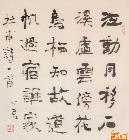 江動月移石
溪虛雲傍花
鳥棲知故道
帆過宿誰家
杜甫詩一首